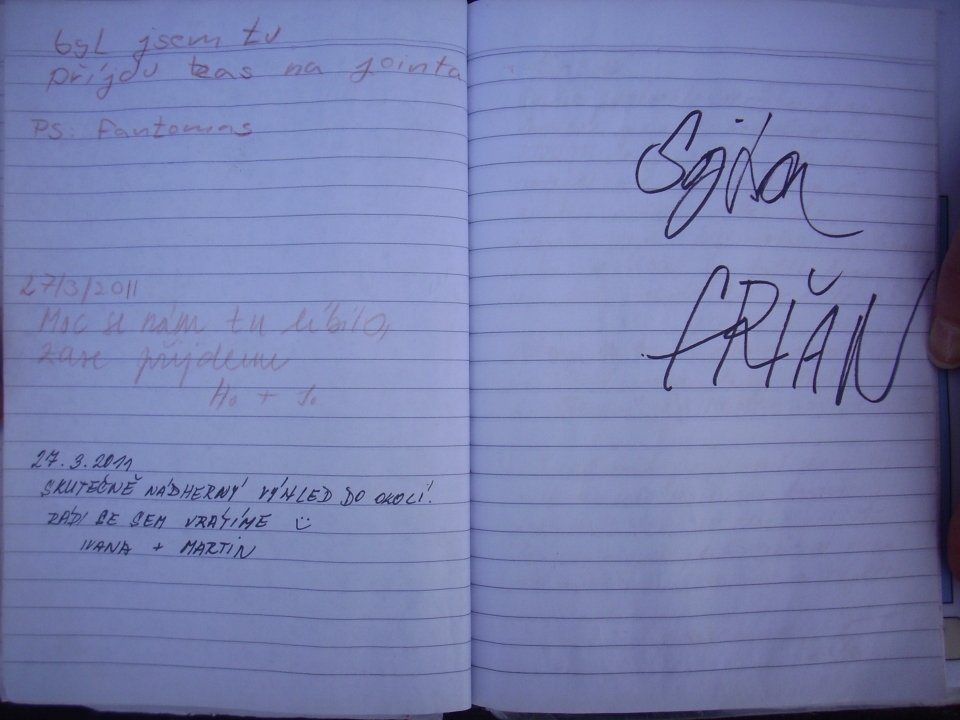 byl jsem tu
příjdu zas na jointa
PS: Fantomas
27/3/2011
Moc se nám tu líbilo,
zase příjdeme
27.3.2011
SKUTEČNĚ NÁDHERNÝ VÝHLED DO OKOLÍ!
RÁDI SE SEM VRÁTÍME
IVANA + MARTIN